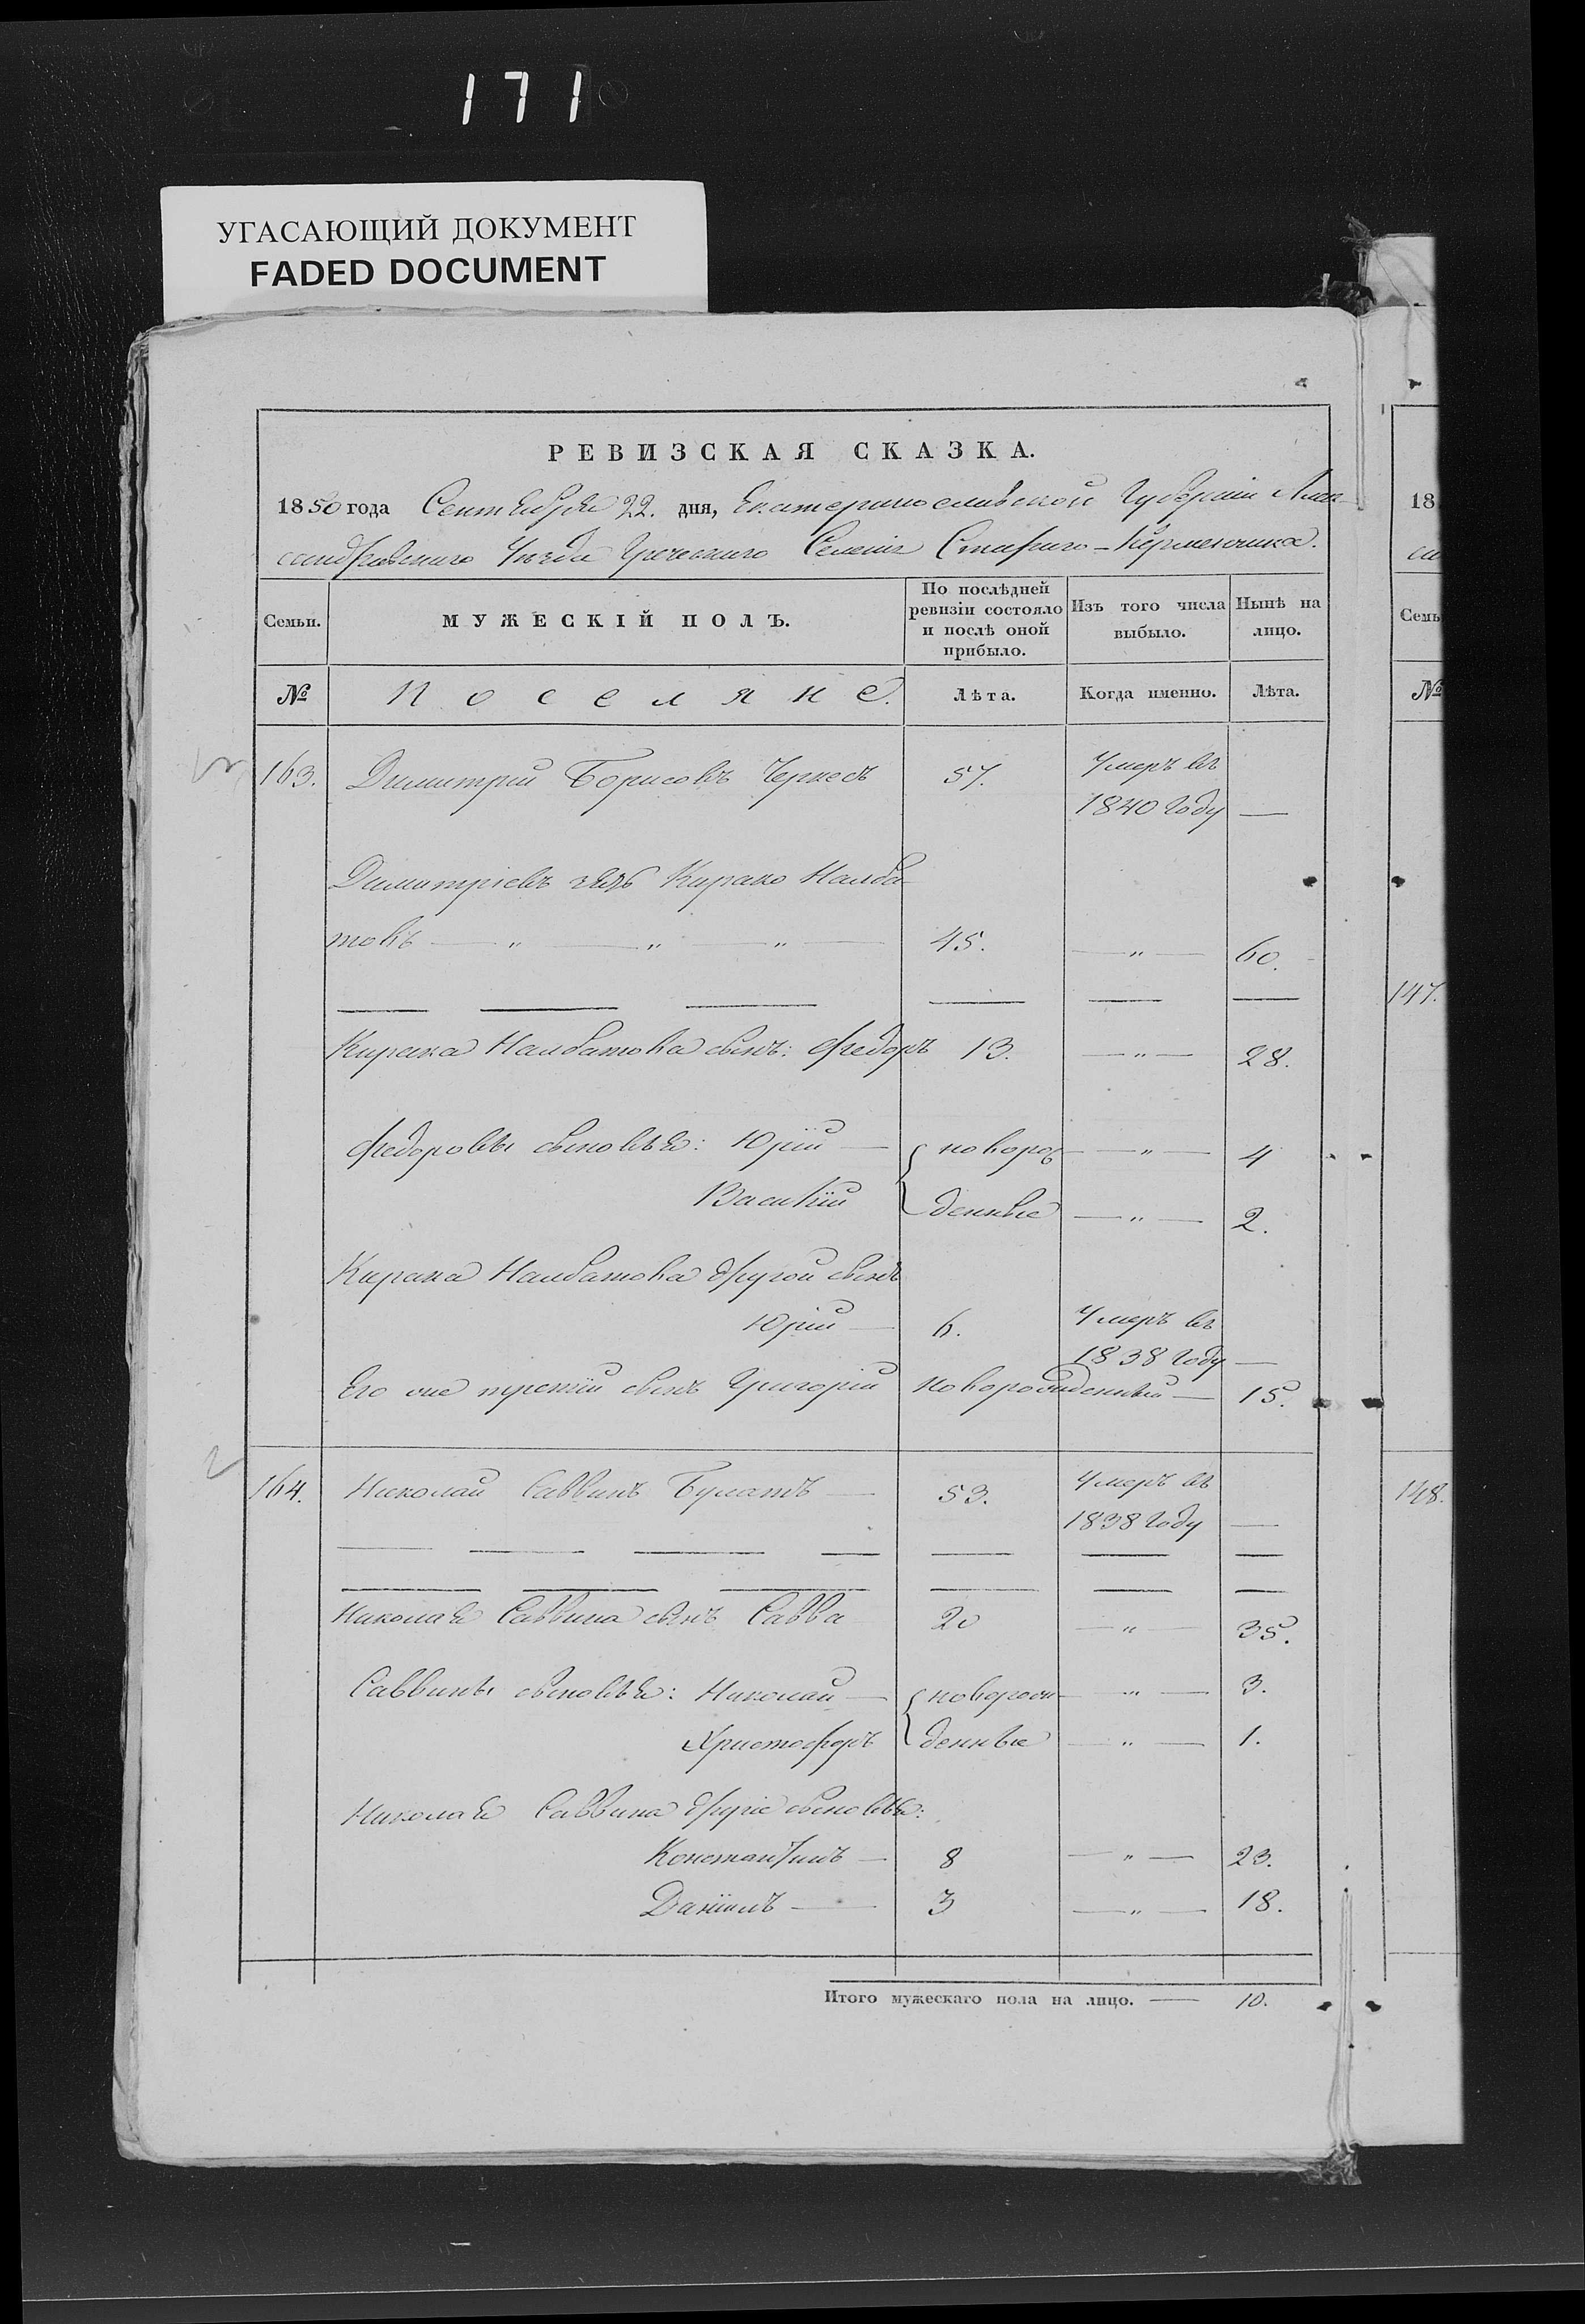 171
УГАСАЮЩИЙ ДОКУМЕНТ
FADED DOCUMENT
РЕВИЗСКАЯ СКАЗКА.
1850 года Сентября 22. дня, Екатеринославской Губерніи Алек-
сандровскаго Уѣзда Греческаго Селенія Стараго-Керменчика.
Семьи. МУЖЕСКІЙ ПОЛЪ. По послѣдней ревизіи состояло и послѣ оной прибыло. Изъ того числа выбыло. Нынѣ на лицо.
№ Поселяне. Лѣта. Когда именно. Лѣта.
163. Димитрій Борисовъ Черкесъ 57. Умеръ въ
1840 году —
Димитріевъ зять Кирако Налба-
товъ — „ — „ — „ — 45. — „ — 60.
Кирака Налбатова сынъ: Федоръ 13. — „ — 28.
Федоровы сыновья: Юрій — новорож- — „ — 4
Василій денные — „ — 2.
Кирака Налбатова другой сынъ
Юрій — 6. Умеръ въ
1838 году —
Его же третій сынъ Григорій новорожденный — 15.
164. Николай Саввинъ Булатъ — 53. Умеръ въ
1838 году —
Николая Саввина сынъ Савва 20 — „ — 35.
Саввины сыновья: Николай — новорож- — „ — 3.
Христофоръ денные — „ — 1.
Николая Саввина другіе сыновья:
Константинъ — 8 — „ — 23.
Даніилъ — 3 — „ — 18.
Итого мужескаго пола на лицо. — 10.
18
Семь
№
147.
148.